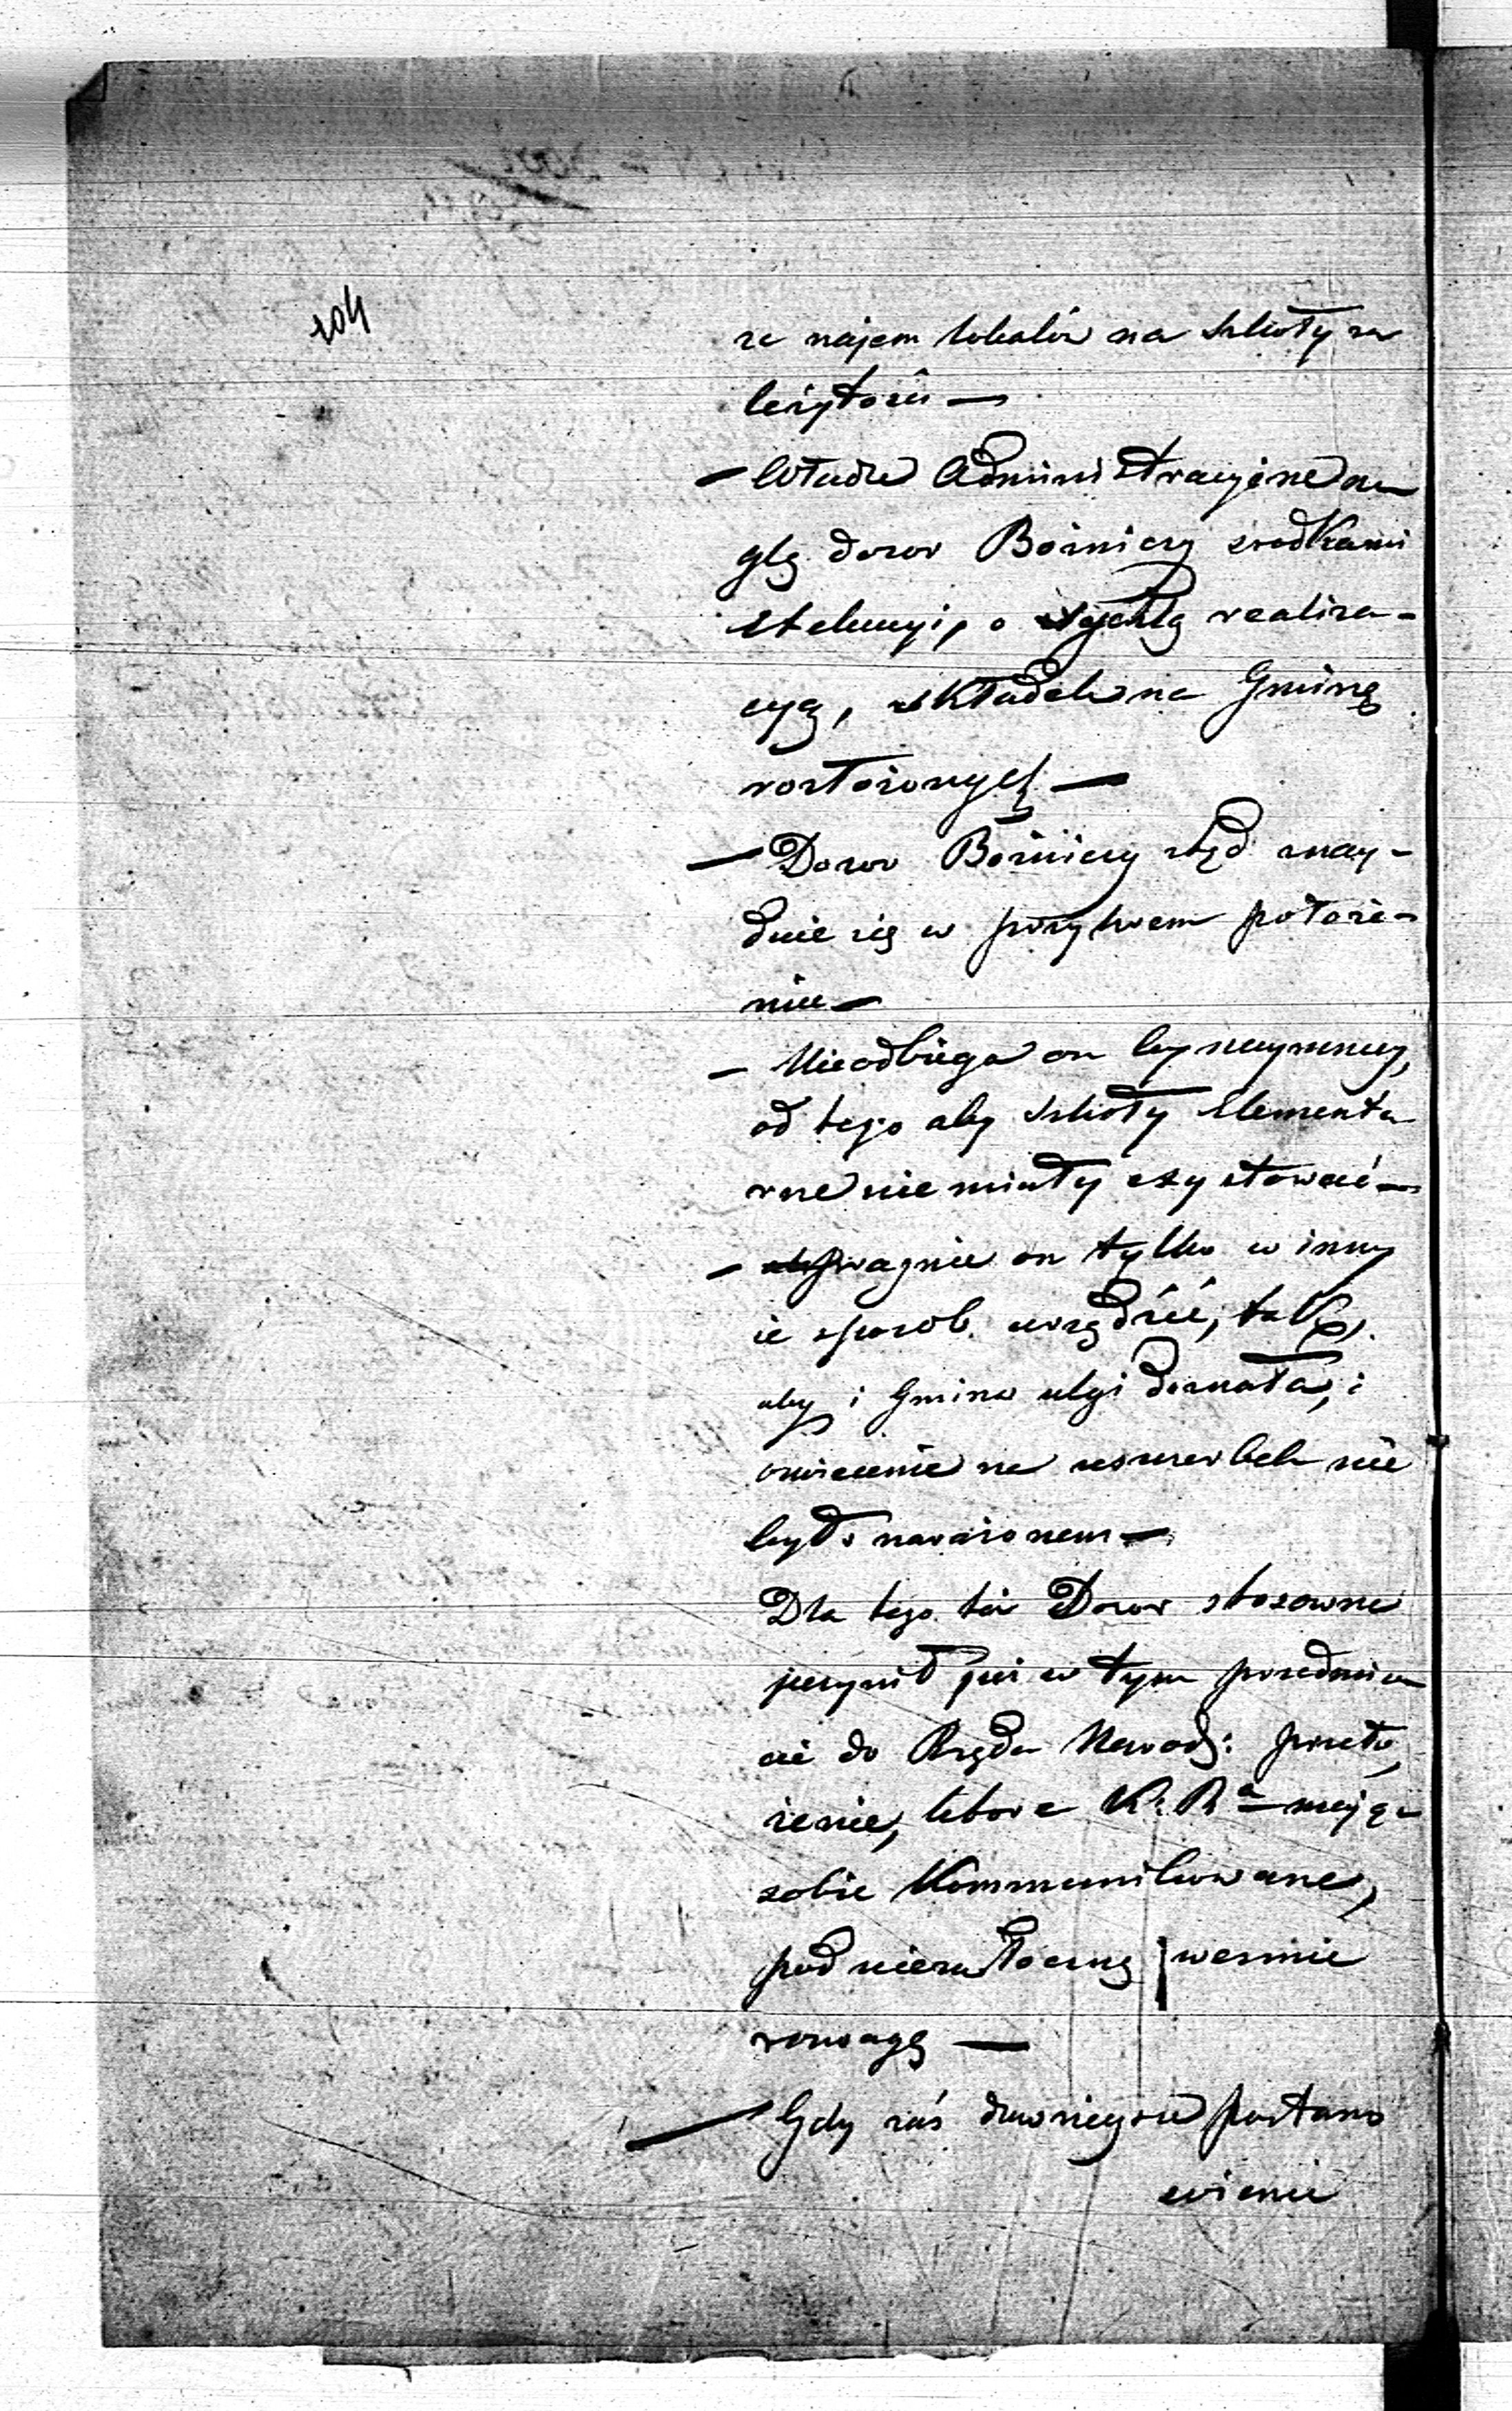 104
za najem lokalów na szkoły za
leżytości —
— Władze Administracyjne na
glą dozor Bożniczy środkami
exekucyi, o rychłą realiza-
cyą, składek na Gminę
rozłożonych —
— Dozor Bożniczy ztąd znay-
duie się w przykrem położe-
niu —
— Nieodbiega on bynaymniey,
od tego aby szkoły Elementa
rne nie miały exystować —
— pragnie on tylko w inny
ie sposob urządzić, tak,
aby i Gmina ulgi doznała, i
oswiecenie na uszczerbek nie
było narażonem —
Dla tego też Dozor stosowne
uczynił już w tym przedmio
cie do Rządu Narod: przeło
żenie, które K. R. mając
sobie kommunikowane,
pod niezwłoczną weźmie
rozwagę —
— Gdy zaś dawnieysze postano
wienie